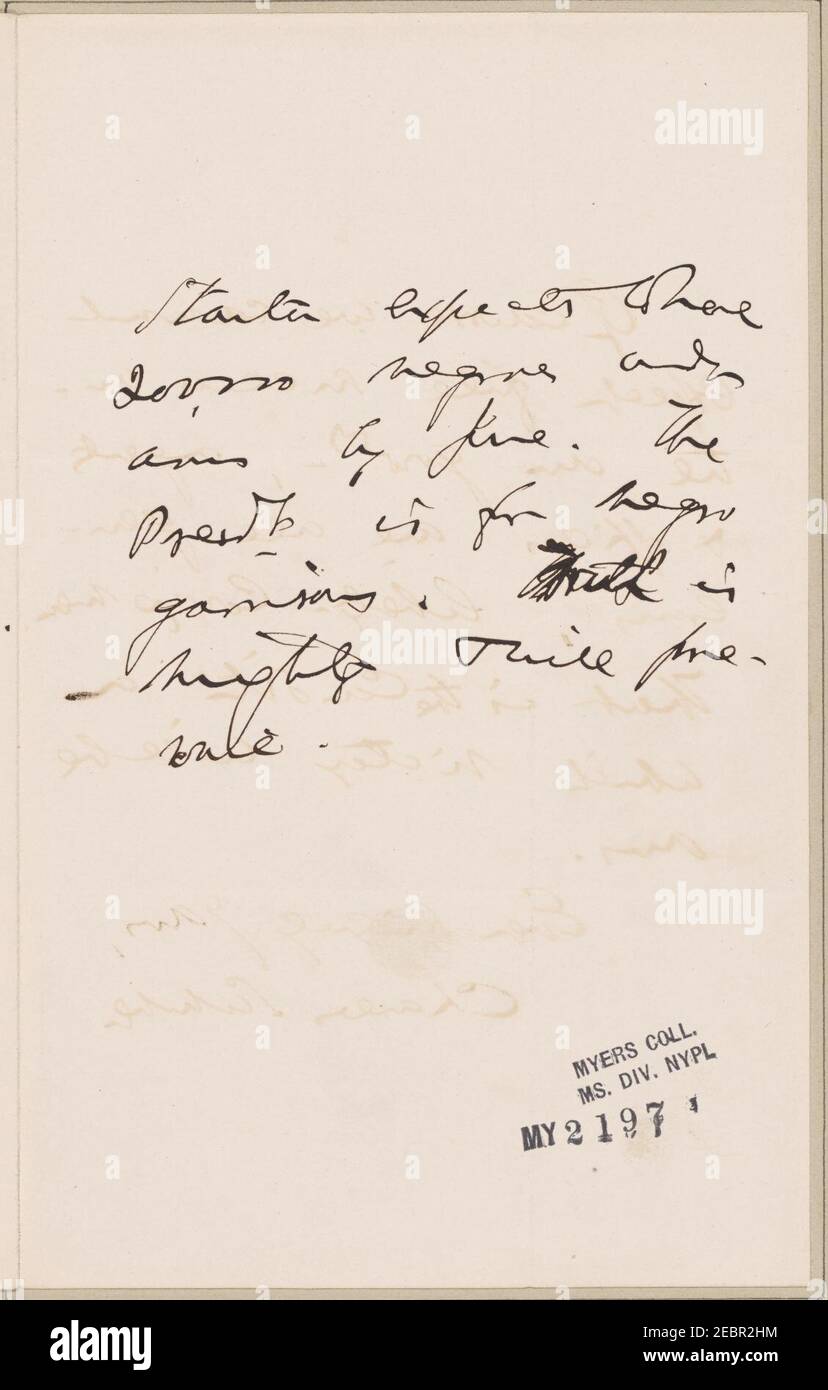 Stanton expects to have
200,000 negroes under
arms by June. The
Presdt. is for negro
garrisons. Truth is
mighty & will pre-
vail.
MYERS COLL.
MS. DIV. NYPL
MY 2197
alamy
Image ID: 2EBR2HM
www.alamy.com